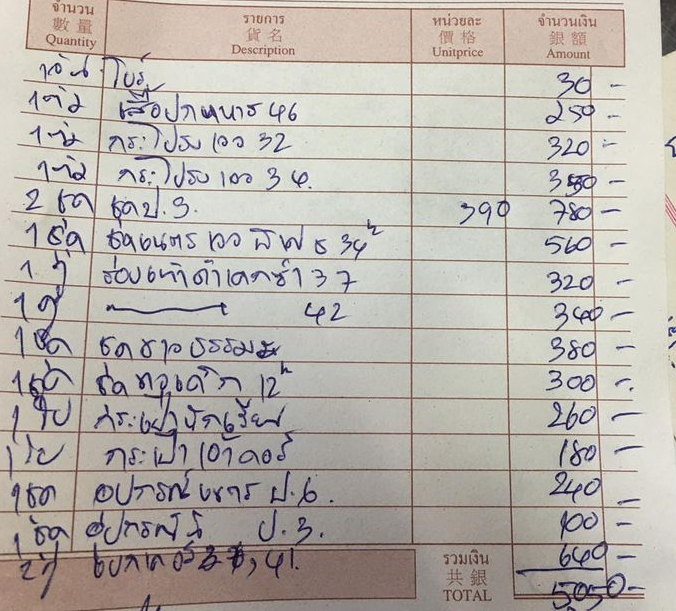 จำนวน รายการ หน่วยละ จำนวนเงิน
數量 貨名 價格 銀額
Quantity Description Unitprice Amount
โบว์ 30 -
1 ตัว เสื้อปกทหาร 46 250 -
1 ตัว กระโปรง เอว 32 320 -
1 ตัว กระโปรง เอว 34. 350 -
2 ชุด ชุด ป.3. 390 780 -
1 ชุด ชุดเนตร เอว 34 560 -
1 คู่ รองเท้าดำ 37 320 -
1 คู่ 42 340 -
1 ชุด ชุดขาวธรรมะ 380 -
1 ชุด 12 300 -
1 ใบ กระเป๋านักเรียน 260 -
1 ใบ กระเป๋า 180 -
1 ชุด อุปกรณ์เนตร ป.6. 240 -
1 ชุด อุปกรณ์ ป.3. 100 -
2 คู่ , 41. 640 -
รวมเงิน
共銀
TOTAL 5050 -